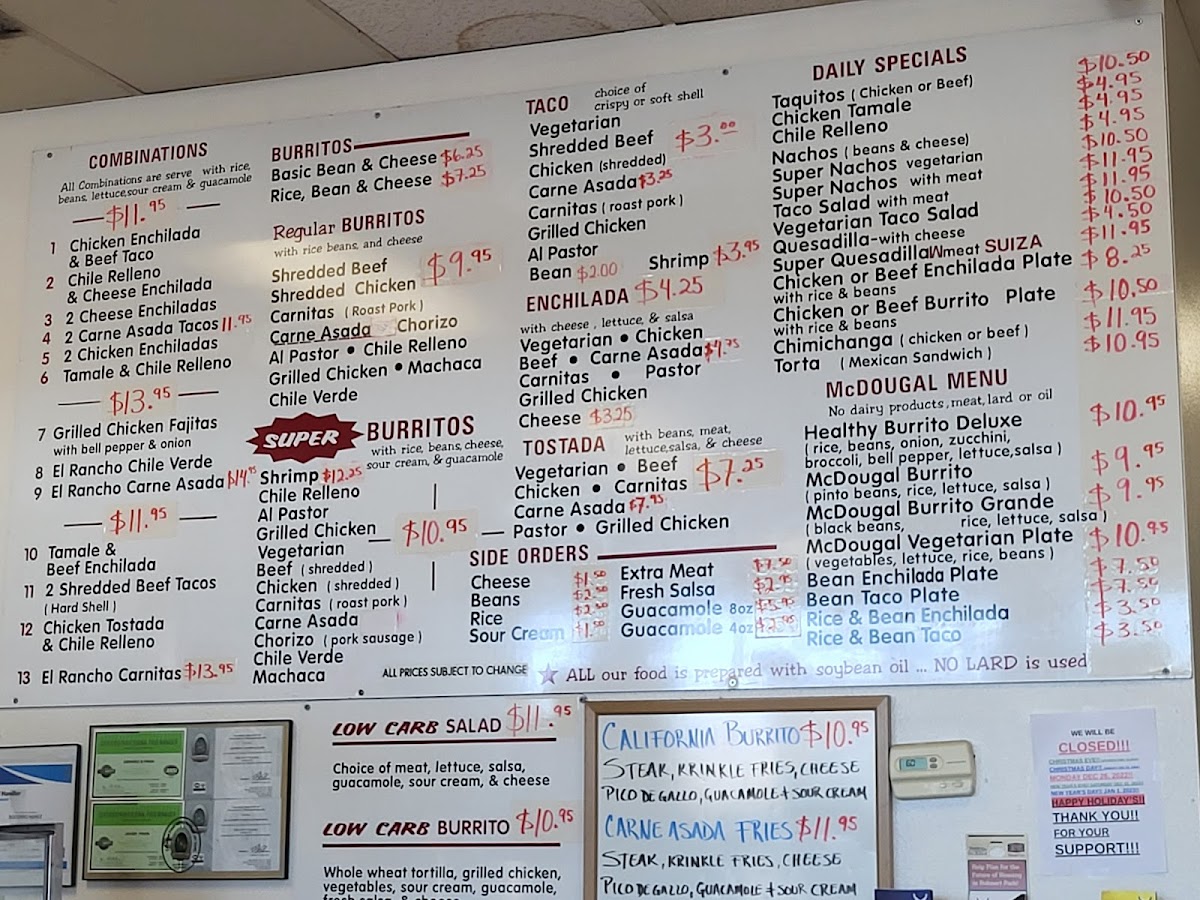 COMBINATIONS
All Combinations are serve with rice,
beans, lettuce,sour cream & guacamole
$11.95
1 Chicken Enchilada
& Beef Taco
2 Chile Relleno
& Cheese Enchilada
3 2 Cheese Enchiladas
4 2 Carne Asada Tacos 11.95
5 2 Chicken Enchiladas
6 Tamale & Chile Relleno
$13.95
7 Grilled Chicken Fajitas
with bell pepper & onion
8 El Rancho Chile Verde
9 El Rancho Carne Asada $14.95
$11.95
10 Tamale &
Beef Enchilada
11 2 Shredded Beef Tacos
( Hard Shell )
12 Chicken Tostada
& Chile Relleno
13 El Rancho Carnitas $13.95
BURRITOS
Basic Bean & Cheese $6.25
Rice, Bean & Cheese $7.25
Regular BURRITOS
with rice beans, and cheese
$9.95
Shredded Beef
Shredded Chicken
Carnitas ( Roast Pork )
Carne Asada Chorizo
Al Pastor • Chile Relleno
Grilled Chicken • Machaca
Chile Verde
SUPER BURRITOS
with rice, beans, cheese,
sour cream, & guacamole
Shrimp $12.25
Chile Relleno
Al Pastor
Grilled Chicken
$10.95
Vegetarian
Beef ( shredded )
Chicken ( shredded )
Carnitas ( roast pork )
Carne Asada
Chorizo ( pork sausage )
Chile Verde
Machaca
TACO choice of
crispy or soft shell
Vegetarian
Shredded Beef $3.00
Chicken (shredded)
Carne Asada $3.25
Carnitas ( roast pork )
Grilled Chicken
Al Pastor
Bean $2.00 Shrimp $3.95
ENCHILADA $4.25
with cheese , lettuce, & salsa
Vegetarian • Chicken
Beef • Carne Asada $4.75
Carnitas • Pastor
Grilled Chicken
Cheese $3.25
TOSTADA with beans, meat,
lettuce,salsa, & cheese
Vegetarian • Beef $7.25
Chicken • Carnitas
Carne Asada $7.95
Pastor • Grilled Chicken
SIDE ORDERS
Cheese $1.50
Beans $2.50
Rice $2.50
Sour Cream $1.50
Extra Meat $7.50
Fresh Salsa $2.95
Guacamole 8oz $5.95
Guacamole 4oz $2.95
ALL PRICES SUBJECT TO CHANGE
ALL our food is prepared with soybean oil ... NO LARD is used
DAILY SPECIALS
Taquitos ( Chicken or Beef) $10.50
Chicken Tamale $4.95
Chile Relleno $4.95
Nachos ( beans & cheese) $4.95
Super Nachos vegetarian $10.50
Super Nachos with meat $11.95
Taco Salad with meat $11.95
Vegetarian Taco Salad $10.50
Quesadilla-with cheese $4.50
Super Quesadilla W meat SUIZA $11.95
Chicken or Beef Enchilada Plate $8.25
with rice & beans
Chicken or Beef Burrito Plate $10.50
with rice & beans
Chimichanga ( chicken or beef ) $11.95
Torta ( Mexican Sandwich ) $10.95
McDOUGAL MENU
No dairy products, meat, lard or oil
Healthy Burrito Deluxe $10.95
( rice, beans, onion, zucchini,
broccoli, bell pepper, lettuce,salsa )
McDougal Burrito $9.95
( pinto beans, rice, lettuce, salsa )
McDougal Burrito Grande $9.95
( black beans, rice, lettuce, salsa )
McDougal Vegetarian Plate $10.95
( vegetables, lettuce, rice, beans )
Bean Enchilada Plate $7.50
Bean Taco Plate $7.50
Rice & Bean Enchilada $3.50
Rice & Bean Taco $3.50
LOW CARB SALAD $11.95
Choice of meat, lettuce, salsa,
guacamole, sour cream, & cheese
LOW CARB BURRITO $10.95
Whole wheat tortilla, grilled chicken,
vegetables, sour cream, guacamole,
fresh salsa, & cheese
CALIFORNIA BURRITO $10.95
STEAK, KRINKLE FRIES, CHEESE
PICO DE GALLO, GUACAMOLE & SOUR CREAM
CARNE ASADA FRIES $11.95
STEAK, KRINKLE FRIES, CHEESE
PICO DE GALLO, GUACAMOLE & SOUR CREAM
WE WILL BE
CLOSED!!!
MONDAY DEC 26, 2022!!
NEW YEAR'S DAY JAN 1, 2023!!
HAPPY HOLIDAY'S!!
THANK YOU!!
FOR YOUR
SUPPORT!!!